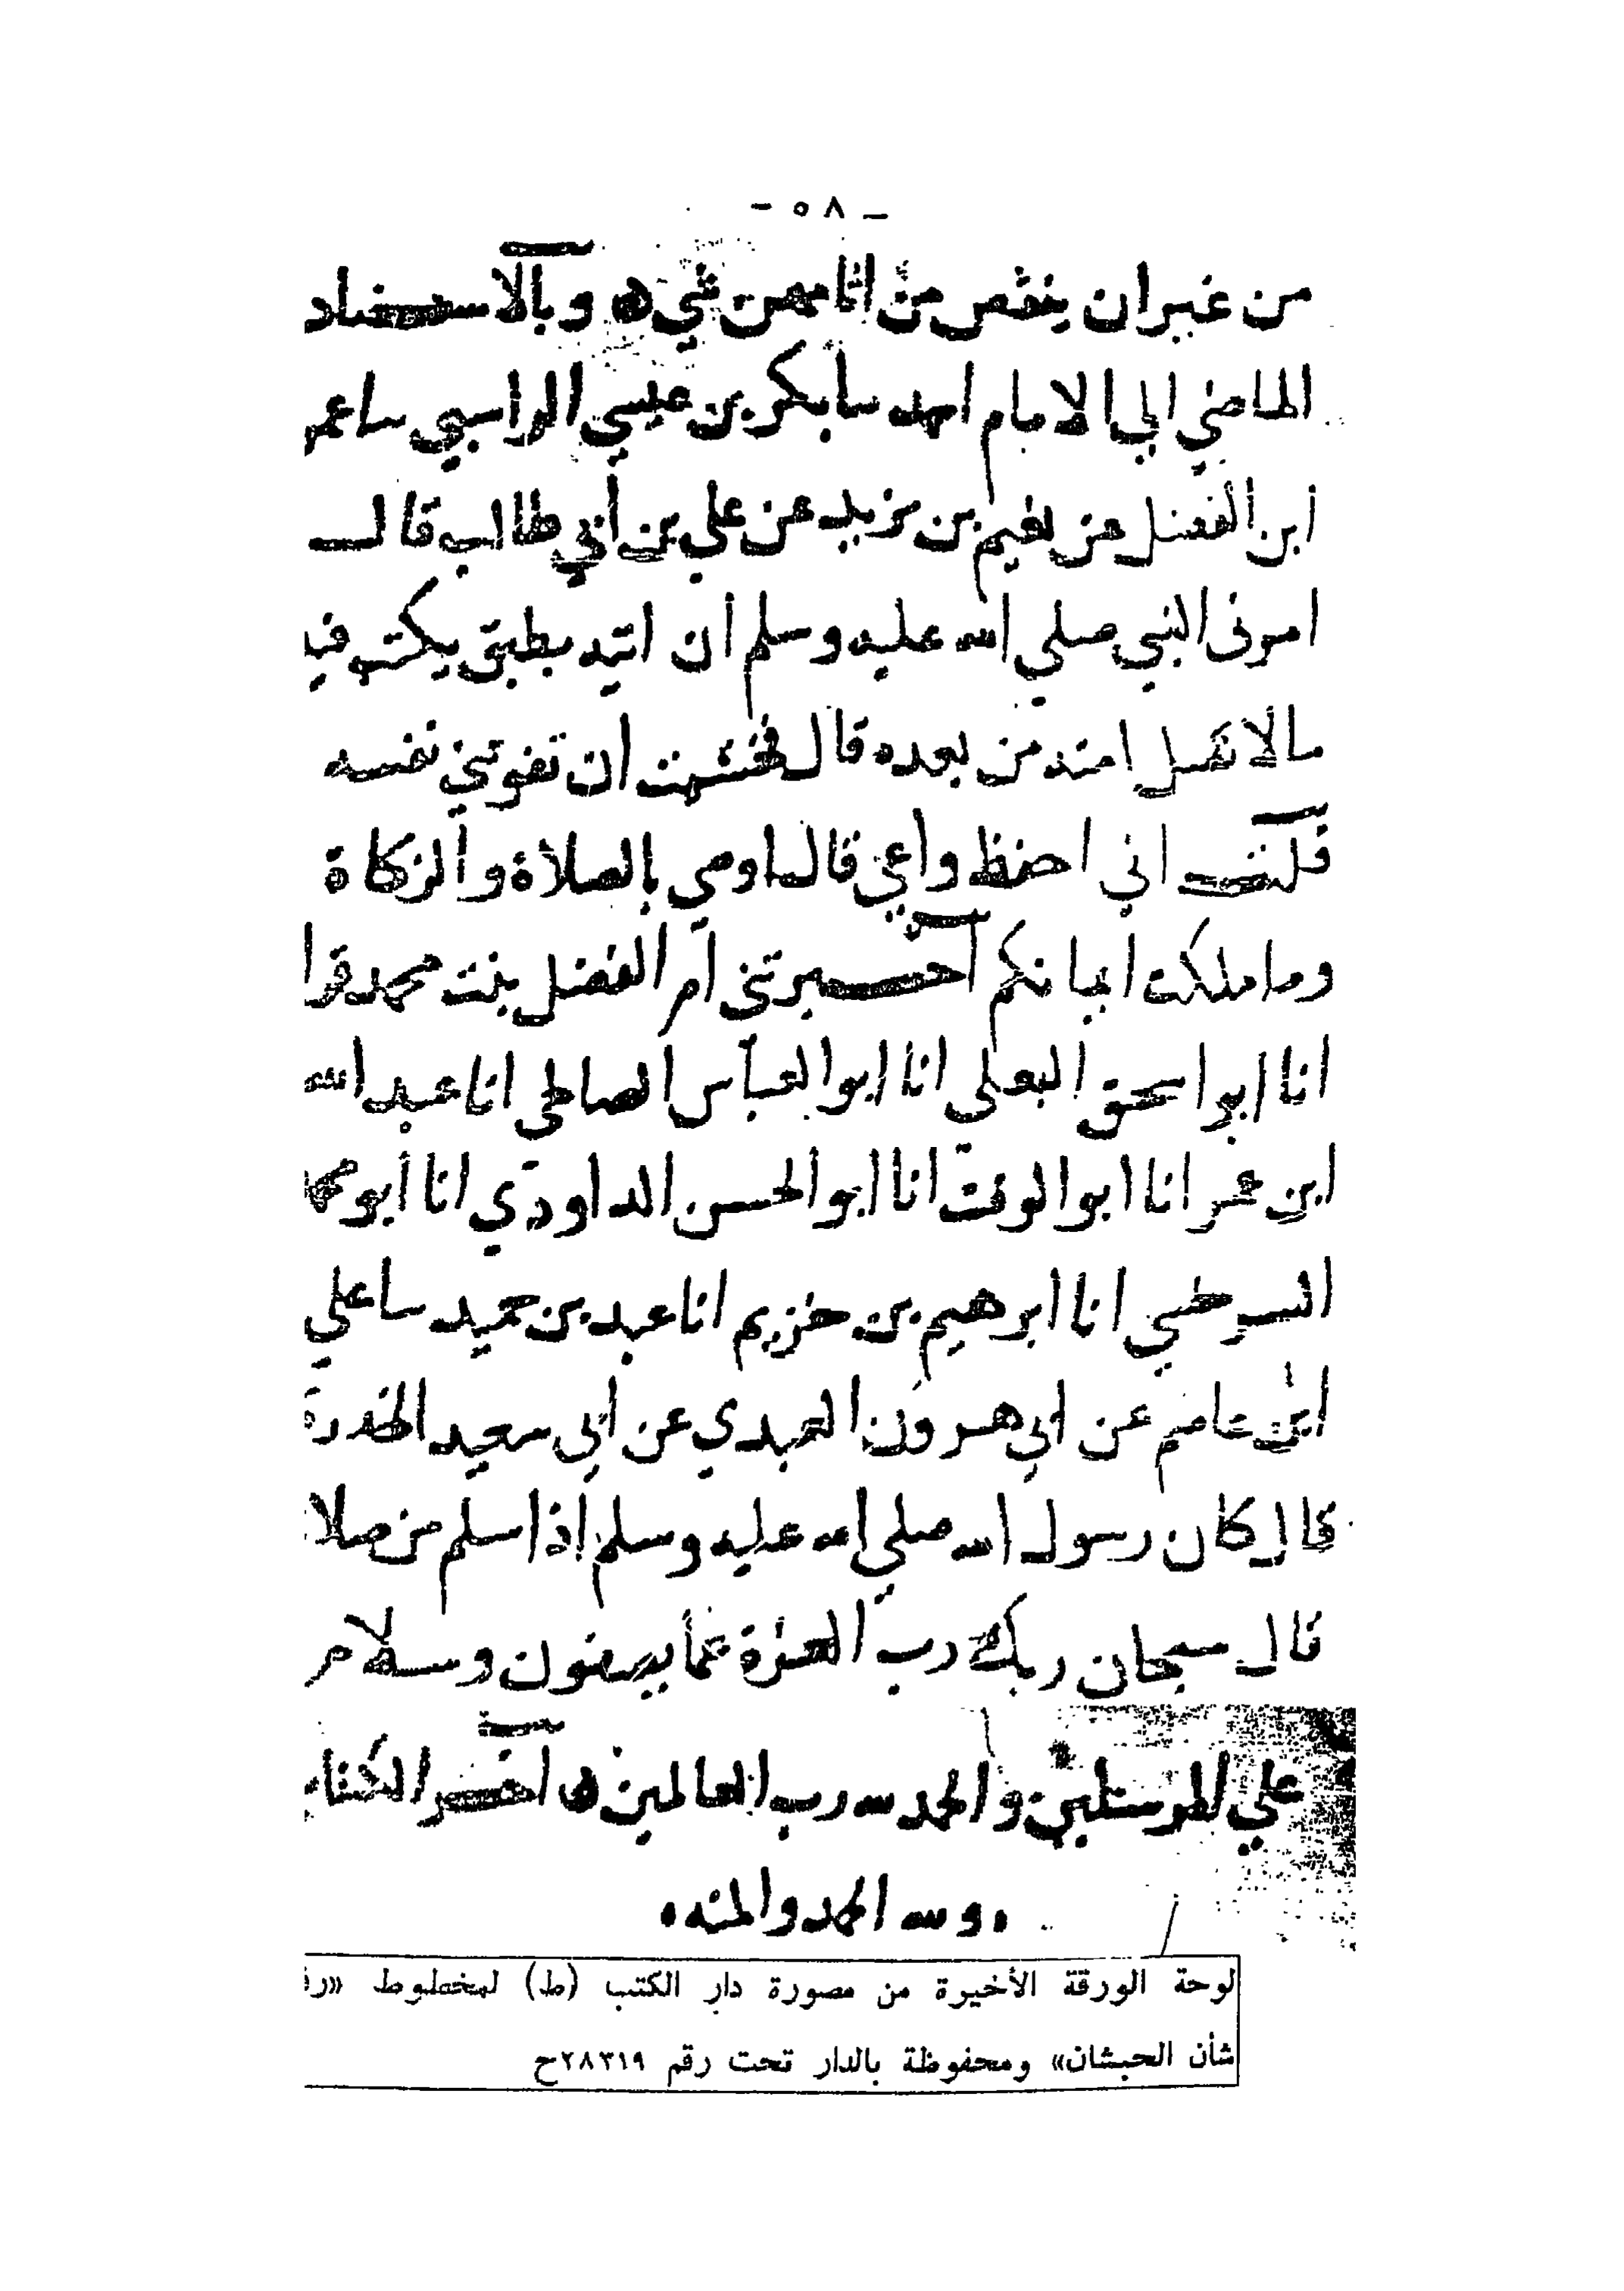 - ٥٨ -
من غير ان ينقص من اثامهم شي ه وبالاسناد
الماضي الي الامام احمد سا بكر بن عيسي الراسبي سا عمر
ابن الفضل عن نعيم بن يزيد عن علي بن أبي طالب قال
امرني النبي صلي الله عليه وسلم ان اتيه بطبق يكتب فيه
مالا تضل امته من بعده قال فخشيت ان تفوتني نفسه
قلت اني احفظ واعي قال اوصي بالصلاة والزكاة
وما ملكت ايمانكم اخبرتني ام الفضل بنت محمد قرا
انا ابو اسحق البعلي انا ابو العباس الصالحي انا عبد الله
ابن عمر انا ابو الوقت انا ابو الحسن الداودي انا ابو محمد
السرخسي انا ابرهيم بن خزيم انا عبد بن حميد سا علي
ابن عاصم عن ابي هرون العبدي عن ابي سعيد الخدري
قال كان رسول الله صلي الله عليه وسلم اذا سلم من صلا
قال سبحان ربك رب العزة عما يصفون وسلام
علي المرسلين والحمد لله رب العالمين ه اخر الكتا
ولله الحمد والمنه
لوحة الورقة الأخيرة من مصورة دار الكتب (ط) لمخطوط «رف
شأن الحبشان» ومحفوظة بالدار تحت رقم ٢٨٣١٩ح